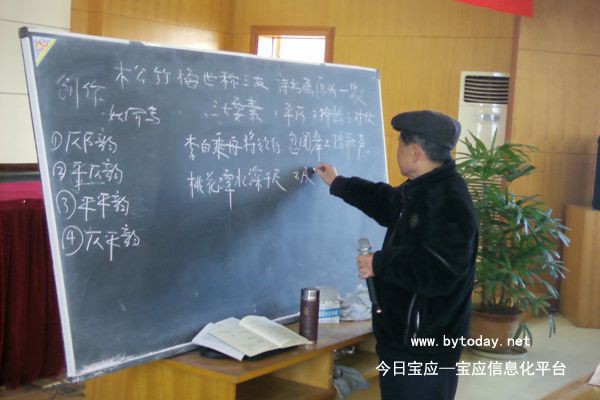 创作 松竹梅世称三友 诗书画
三要素 ①平仄 ②
①仄仄韵
②平仄韵
③平平韵
④仄平韵
李白乘舟将欲行 忽闻岸上踏歌声。
桃花潭水深千尺 不及
www.bytoday.net
今日宝应—宝应信息化平台